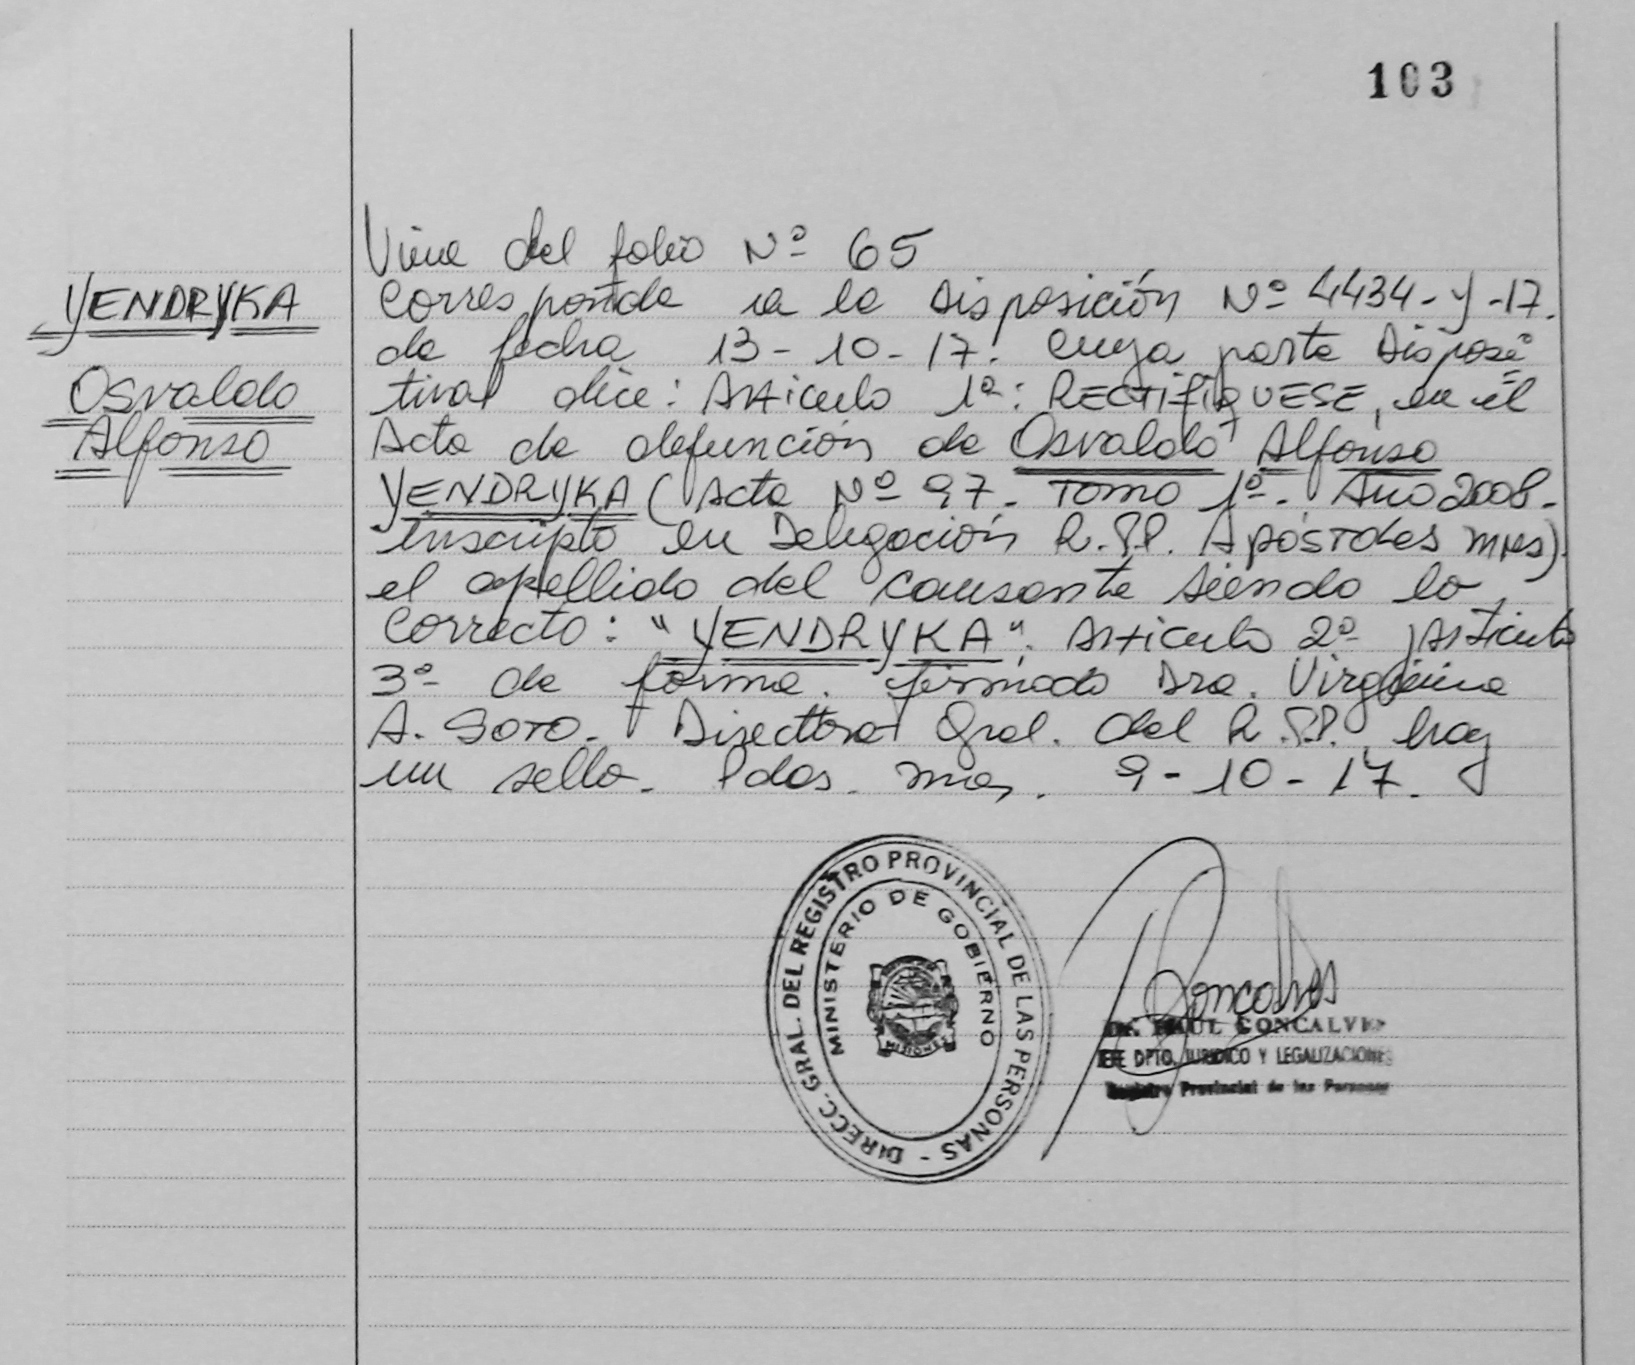 103
YENDRYKA
Osvaldo
Alfonso
Viene del folio Nº 65
Corresponde a la Disposición Nº 4434-Y-17.
de fecha 13-10-17. cuya parte Disposi
tiva dice: Articulo 1º: RECTIFIQUESE, en el
Acta de defunción de Osvaldo Alfonso
YENDRYKA (Acta Nº 97. Tomo 1º. Año 2008.
inscripto en Delegación R.P.P. Apóstoles Mnes)
el apellido del causante siendo lo
correcto: "YENDRYKA". Articulo 2º Articulo
3º de forma. firmado Dra. Virginia
A. SOTO. Directora Gral. del R.P.P. hay
un sello. Pdas. Mnes. 9-10-17.
DIRECC. GRAL. DEL REGISTRO PROVINCIAL DE LAS PERSONAS -
MINISTERIO DE GOBIERNO
MISIONES
Goncalves
Dr. RAUL GONCALVES
JEFE DPTO. JURIDICO Y LEGALIZACIONES
Registro Provincial de las Personas